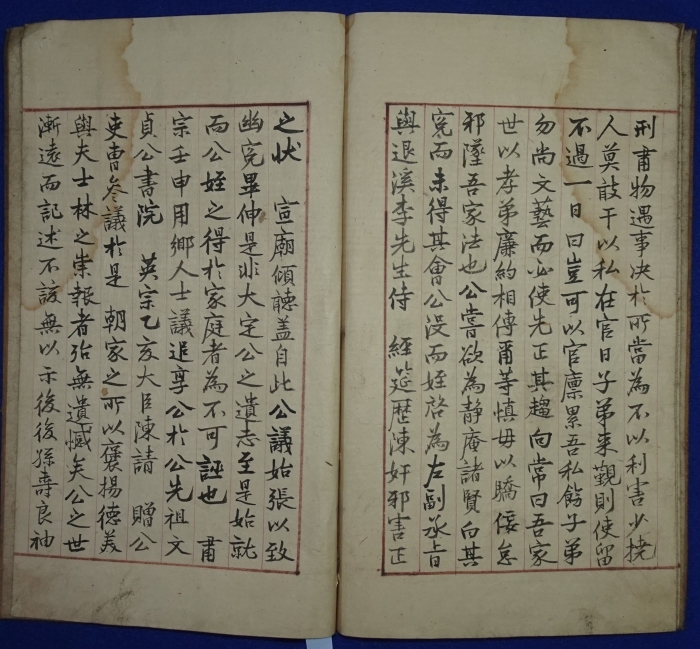 刑肅物遇事决於所當為不以利害少撓
人莫敢干以私在官日子弟来觀則使留
不過一日曰豈可以官廩累吾私餝子弟
勿尚文藝而必使先正其趨向常曰吾家
世以孝弟廉約相傳爾等慎毋以驕倭怠
邪墜吾家法也公嘗欲為静庵諸賢白其
寃而未得其會公沒而姪啓為左副承旨
與退溪李先生侍　經筵歷陳奸邪害正
之狀　宣廟傾聽盖自此公議始張以致
幽寃畢伸是非大定公之遺志至是始就
而公姪之得於家庭者為不可誣也　肅
宗壬申用鄉人士議追享公於公先祖文
貞公書院　英宗乙亥大臣陳請　贈公
吏曹叅議於是　朝家之所以褒揚德美
與夫士林之崇報者殆無遺憾矣公之世
漸遠而記述不該無以示後後孫壽良袖